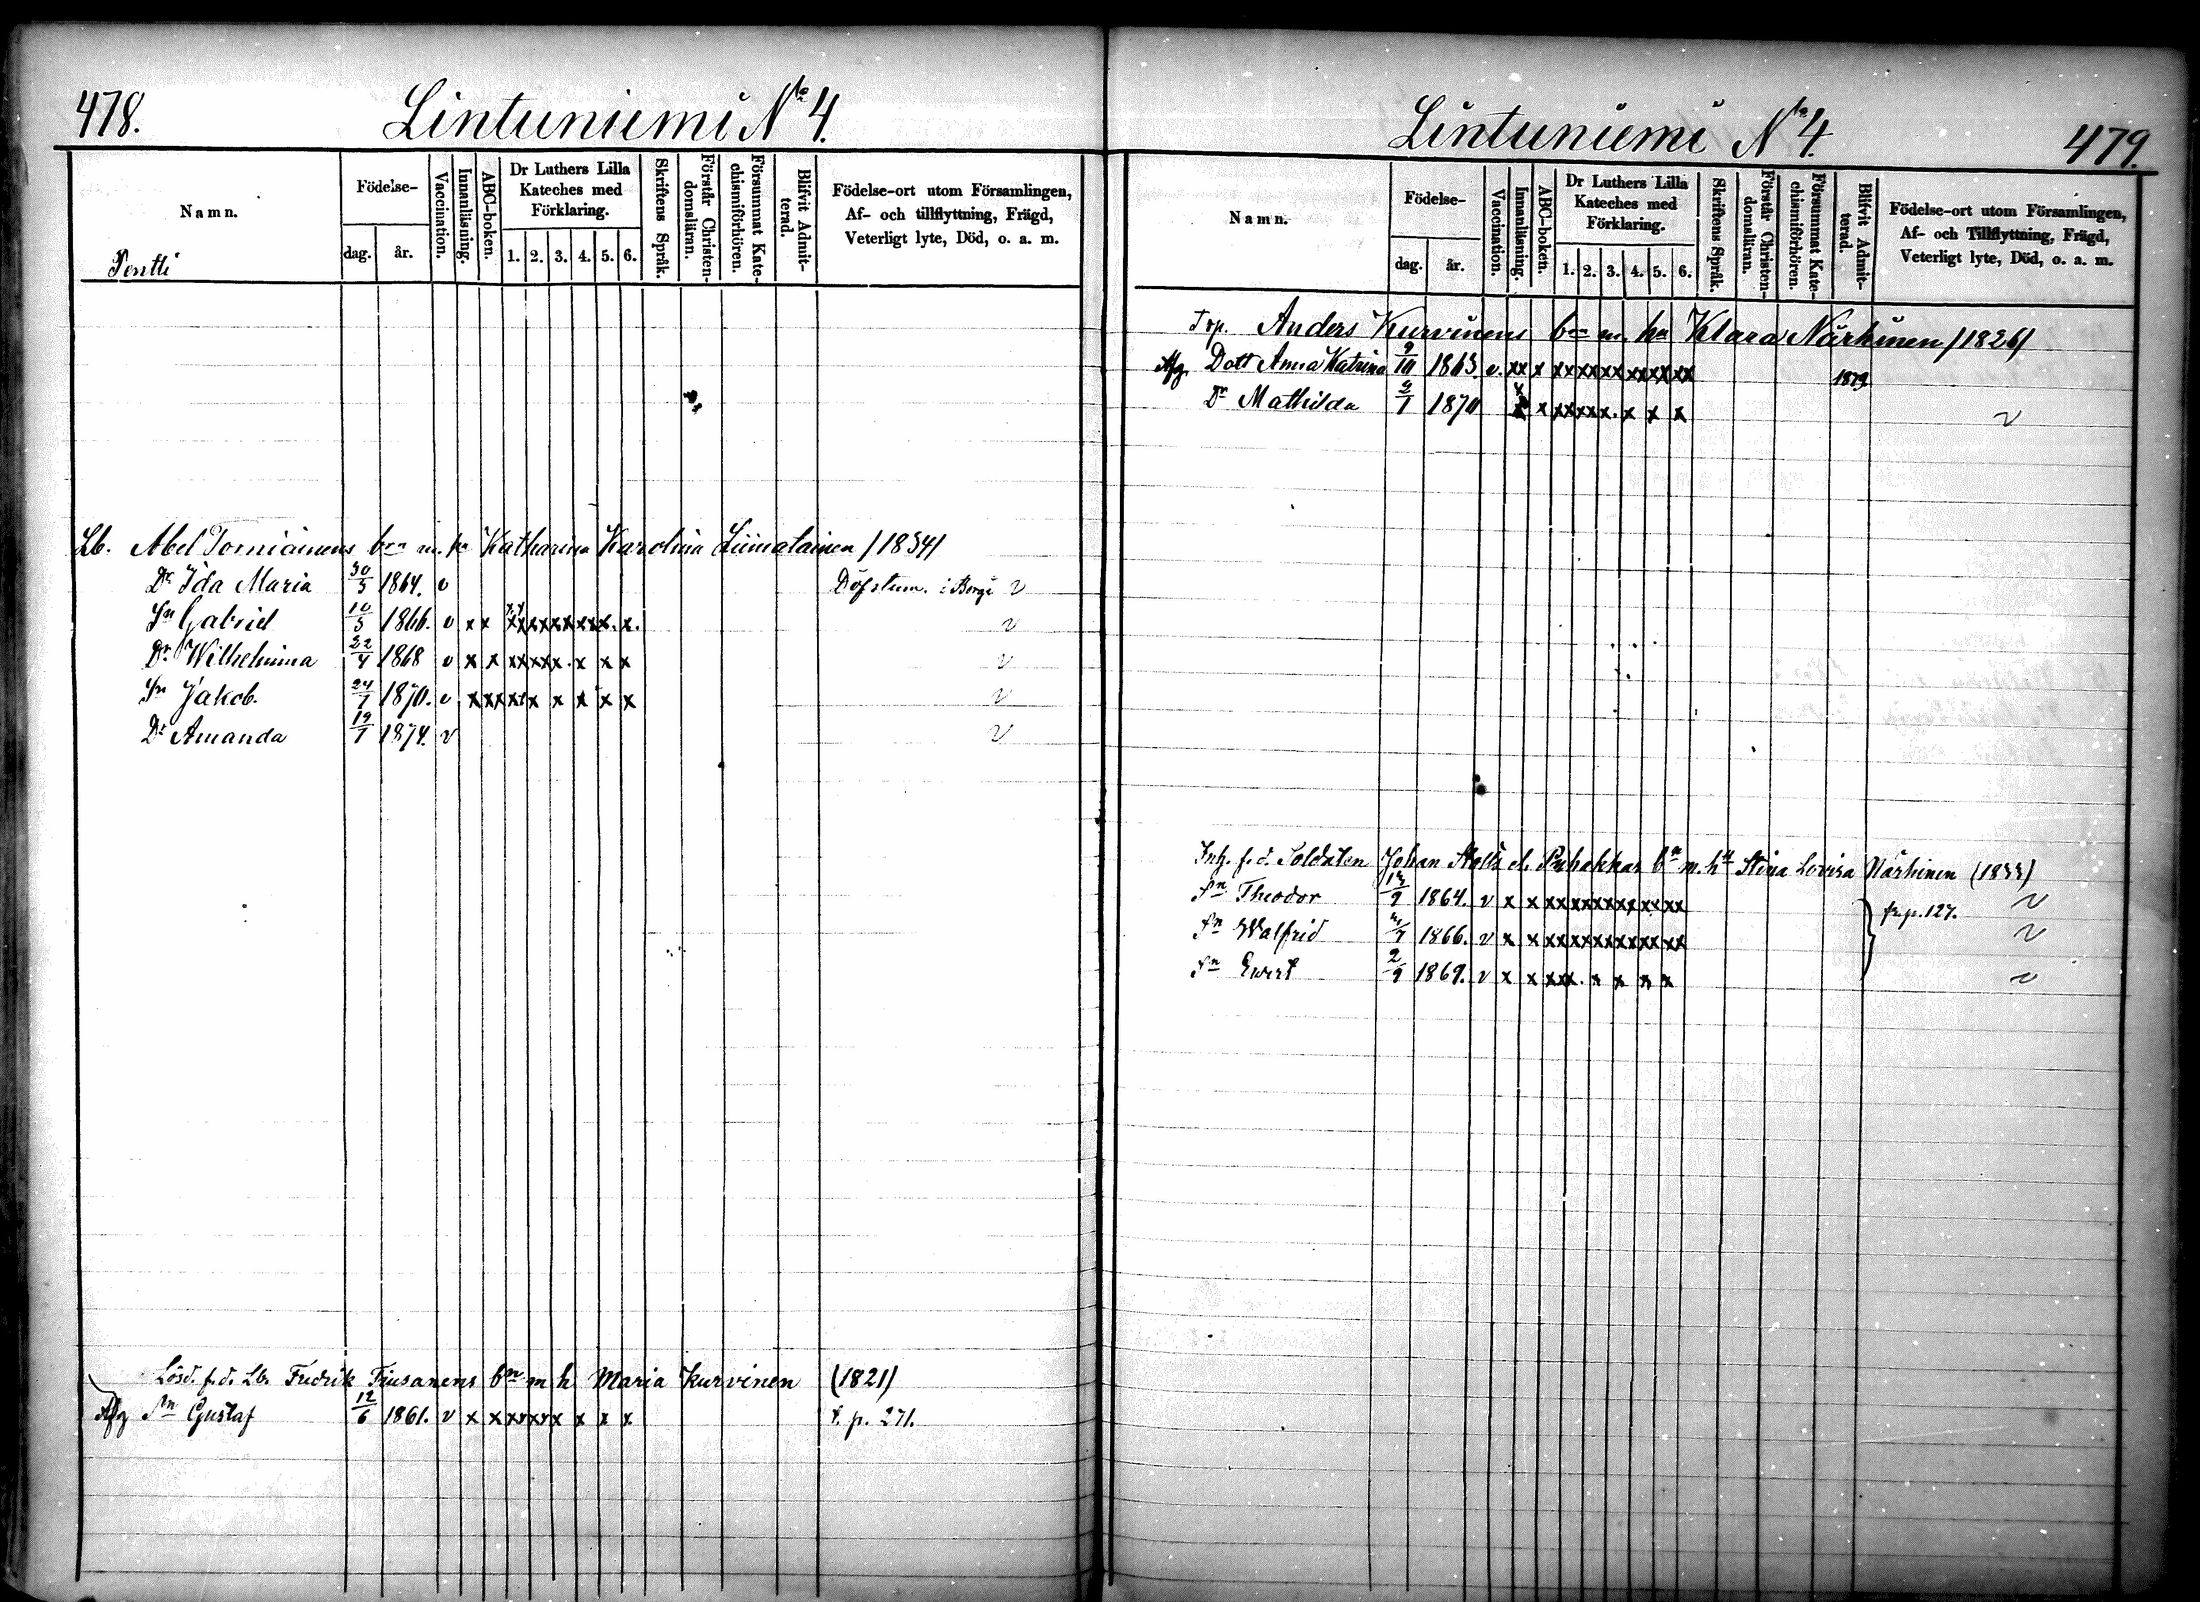 478. Lintuniemi No 4.
Namn.
Födelse-
dag. år.
Vaccination.
Innanläsning.
ABC-boken.
Dr Luthers Lilla Kateches med Förklaring.
1. 2. 3. 4. 5. 6.
Skriftens Språk.
Förstår Christendomsläran.
Försummat Katechismiförhören.
Blifvit Admitterad.
Födelse-ort utom Församlingen,
Af- och tillflyttning, Frägd,
Veterligt lyte, Död, o. a. m.
Pentti
Lb. Abel Torniainens bn m. hu Katharina Karolina Liimatainen /1834/
Dr Ida Maria 30/5 1864. v Döfstum. i Borgå v
Sn Gabriel 10/5 1866. v x x x x x x x x x x x. x. v
Dr Wilhelmina 22/4 1868 v x x x x x x x. x x x v
Sn Jakob. 24/7 1870. v x x x x x x x x x x v
Dr Amanda 19/1 1874. v v
Lösd. f. d. Lb. Fredrik Tiusanens bn m h Maria Kurvinen (1821)
Afg Sn Gustaf 12/6 1861. v x x x x x x x x x x f. p. 271.
Lintuniemi No 4. 479.
Namn.
Födelse-
dag. år.
Vaccination.
Innanläsning.
ABC-boken.
Dr Luthers Lilla Kateches med Förklaring.
1. 2. 3. 4. 5. 6.
Skriftens Språk.
Förstår Christendomsläran.
Försummat Katechismiförhören.
Blifvit Admitterad.
Födelse-ort utom Församlingen,
Af- och Tillflyttning, Frägd,
Veterligt lyte, Död, o. a. m.
Torp. Anders Kurvinens bn m. hu Klara Närhinen /1826/
Afg. Dott Anna Katrina 9/10 1863. v. x x x x x x x x x x x x x x x 1879
Dr Mathilda 9/1 1870 x x x x x x x. x x x v
Inh. f. d. Soldaten Johan Stolts el. Puhakkas bn m. hu Stina Lovisa Närhinen (1833)
Sn Theodor 13/9 1864. v x x x x x x x x x x x x x x fr. p. 127. v
Sn Walfrid 1866. v x x x x x x x x x x x x x x v
Sn Evert 2/9 1869. v x x x x x. x x x x v